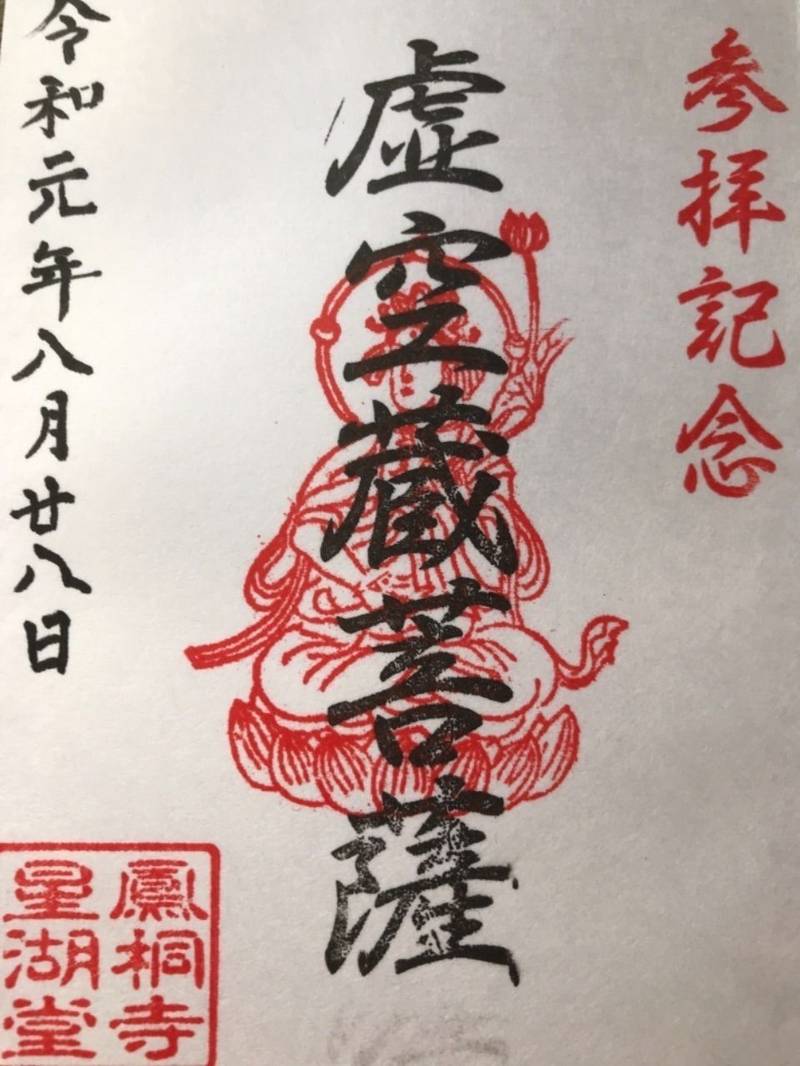 参拝記念
虚空蔵菩薩
令和元年八月廿八日
鳳桐寺
星湖堂